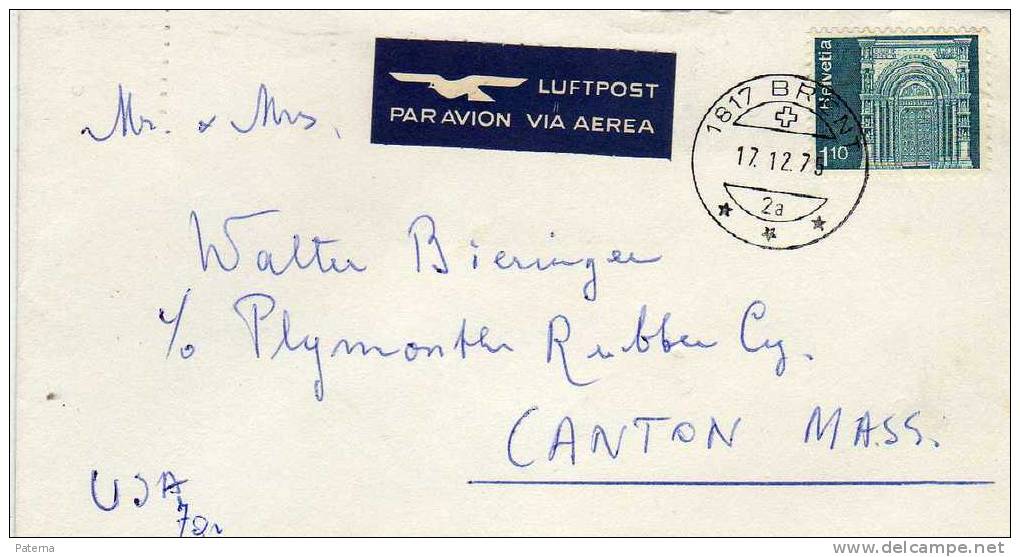 Helvetia
1817 BRENT
LUFTPOST
PAR AVION VIA AEREA
Mr. & Mrs.
17.12.75
110
2a
Walter Bieringer
c/o Plymouth Rubber Cy.
CANTON MASS.
USA
Paterna
www.delcampe.net